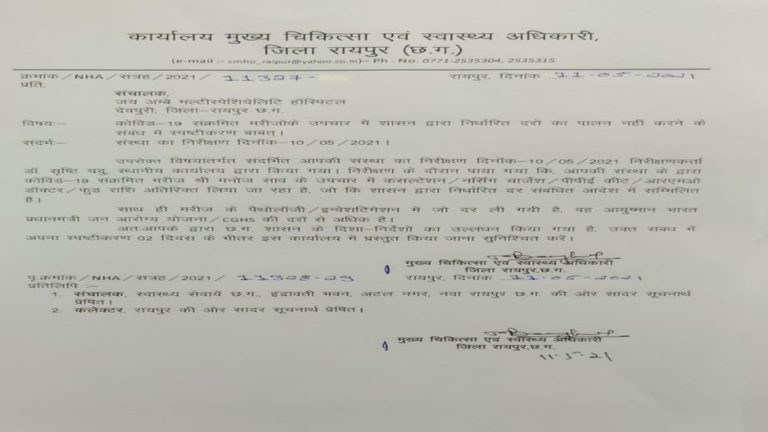 कार्यालय मुख्य चिकित्सा एवं स्वास्थ्य अधिकारी,
जिला रायपुर (छ.ग.)
(e-mail :- cmho_raipur@yahoo.co.in)– Ph . No. 0771-2535304, 2535315
क्रमांक/NHA/सत्रह/2021/ 11327- रायपुर, दिनांक 11-05-2021
प्रति,
संचालक,
जय अम्बे मल्टीस्पेशियेलिटि हॉस्पिटल
देवपुरी, जिला–रायपुर छ.ग.
विषयः– कोविड–19 संकमित मरीजोंके उपचार में शासन द्वारा निर्धारित दरों का पालन नहीं करने के
संबध में स्पष्टीकरण बाबत्।
संदर्भः– संस्था का निरीक्षण दिनॉक–10/05/2021।
उपरोक्त विषयातर्गत संदर्भित आपकी संस्था का निरीक्षण दिनॉक–10/05/2021 निरीक्षणकर्ता
डॉ. सृष्टि यदु, स्थानीय कार्यालय द्वारा किया गया। निरीक्षण के दौरान पाया गया कि, आपकी संस्था के द्वारा
कोविड–19 संकमित मरीज श्री मनोज साव के उपचार में कंसल्टेशन/नर्सिग चार्जेश/पीपीई कीट/आरएमओ
डॉक्टर/फुड राशि अतिरिक्त लिया जा रहा है, जो कि शासन द्वारा निर्धारित दर संबधित आदेश में सम्मिलित
है।
साथ ही मरीज के पैथोलॉजी/इन्वेशटिगेशन में जो दर ली गयी है, वह आयुष्मान भारत
प्रधानमंत्री जन आरोग्य योजना/CGHS की दरों से अधिक है।
अतःआपके द्वारा छ.ग. शासन के दिशा–निर्देशों का उल्लघन किया गया है, उक्त संबध में
अपना स्पष्टीकरण 02 दिवस के भीतर इस कार्यालय में प्रस्तुत किया जाना सुनिश्चित करें।
मुख्य चिकित्सा एवं स्वास्थ्य अधिकारी
जिला रायपुर,छ.ग.
पृ.क्रमांक/NHA/सत्रह/2021/ 11328-29 रायपुर, दिनांक 11-05-2021
प्रतिलिपि :–
1. संचालक, स्वास्थ्य सेवायें छ.ग., इंद्रावती भवन, अटल नगर, नवा रायपुर छ.ग. की ओर सादर सूचनार्थ
प्रेषित।
2. कलेक्टर, रायपुर की ओर सादर सूचनार्थ प्रेषित।
मुख्य चिकित्सा एवं स्वास्थ्य अधिकारी
जिला रायपुर,छ.ग.
11.5.21